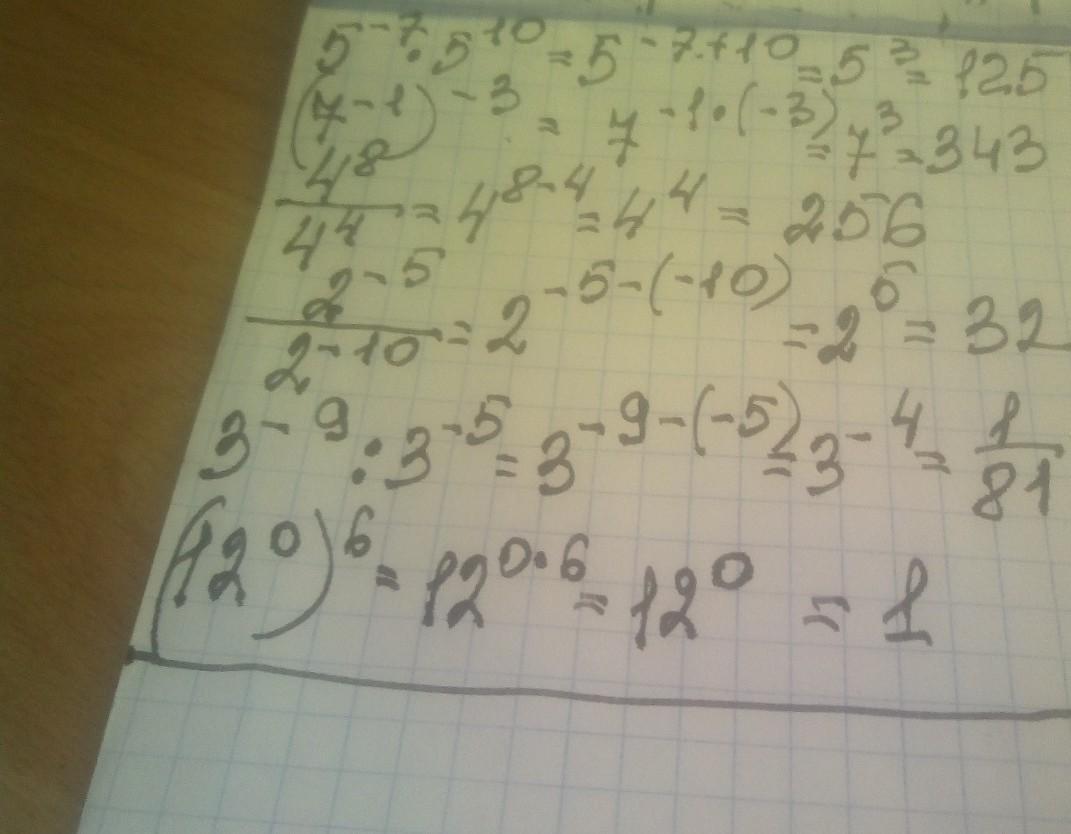 5⁻⁷·5¹⁰ = 5⁻⁷⁺¹⁰ = 5³ = 125
(7⁻¹)⁻³ = 7⁻¹·⁽⁻³⁾ = 7³ = 343
4⁸/4⁴ = 4⁸⁻⁴ = 4⁴ = 256
2⁻⁵/2⁻¹⁰ = 2⁻⁵⁻⁽⁻¹⁰⁾ = 2⁵ = 32
3⁻⁹ : 3⁻⁵ = 3⁻⁹⁻⁽⁻⁵⁾ = 3⁻⁴ = 1/81
(12⁰)⁶ = 12⁰·⁶ = 12⁰ = 1